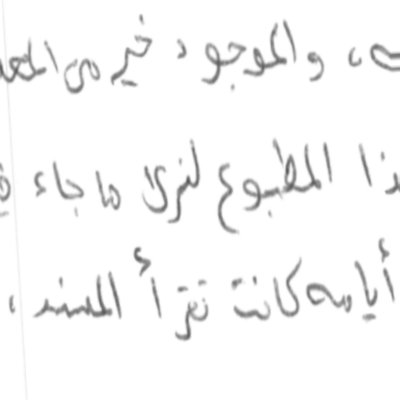 ، والموجود خير من المعد
ذا المطبوع لنرى ما جاء في
أيامه كانت تقرأ المسند ،